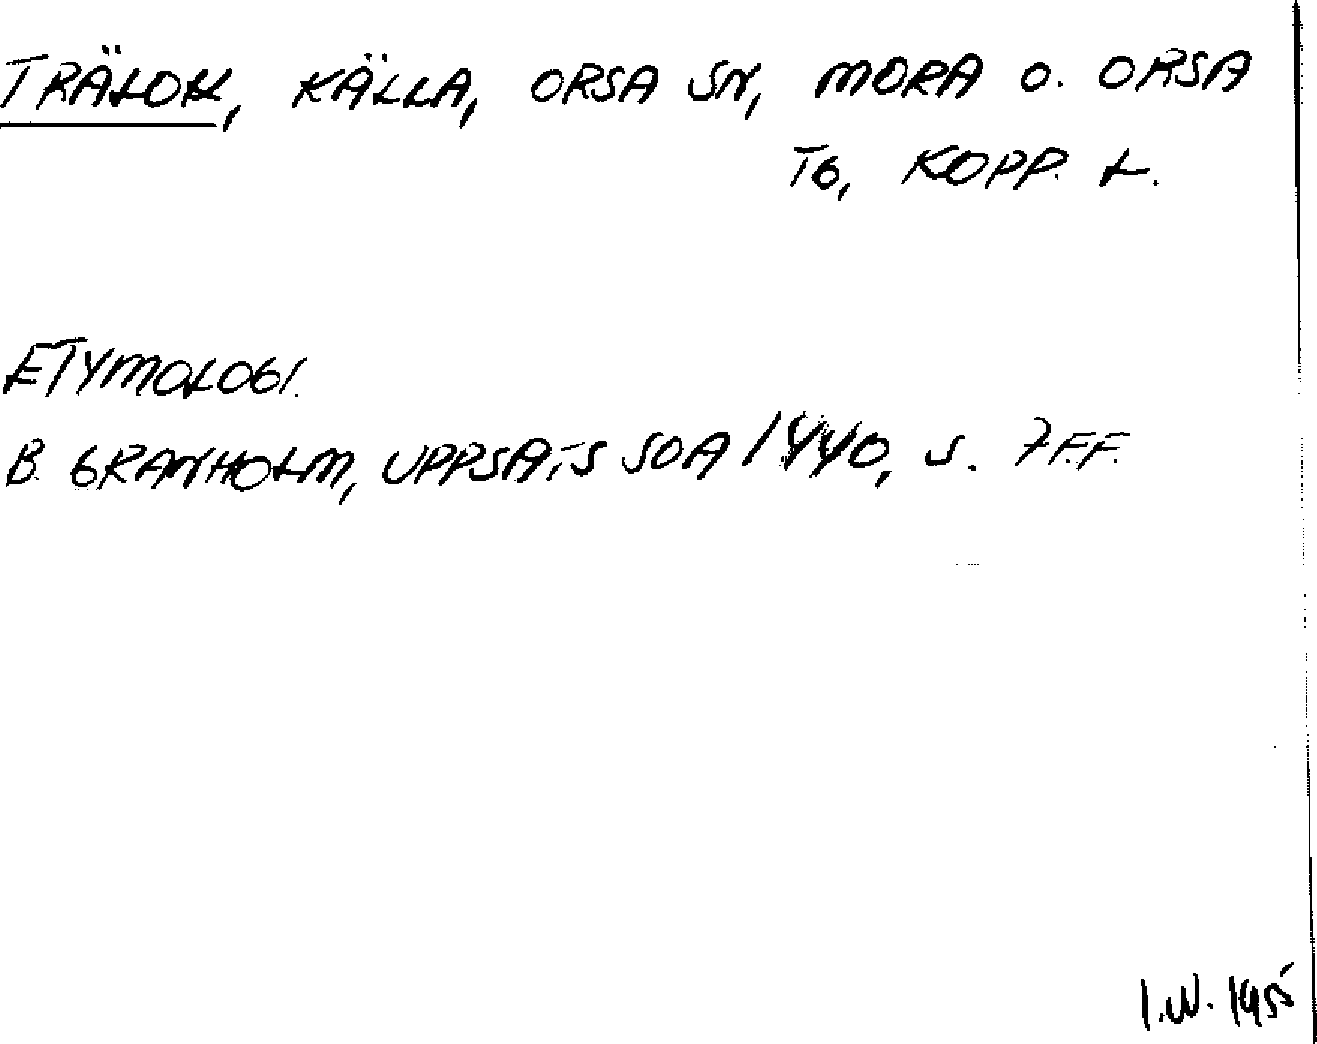 TRÄLON, KÄLLA, ORSA SN, MORA O. ORSA
TG, KOPP. L.
ETYMOLOGI.
B. GRANHOLM, UPPSATS SOA 1440, S. 7 FF.
I.W. 1955